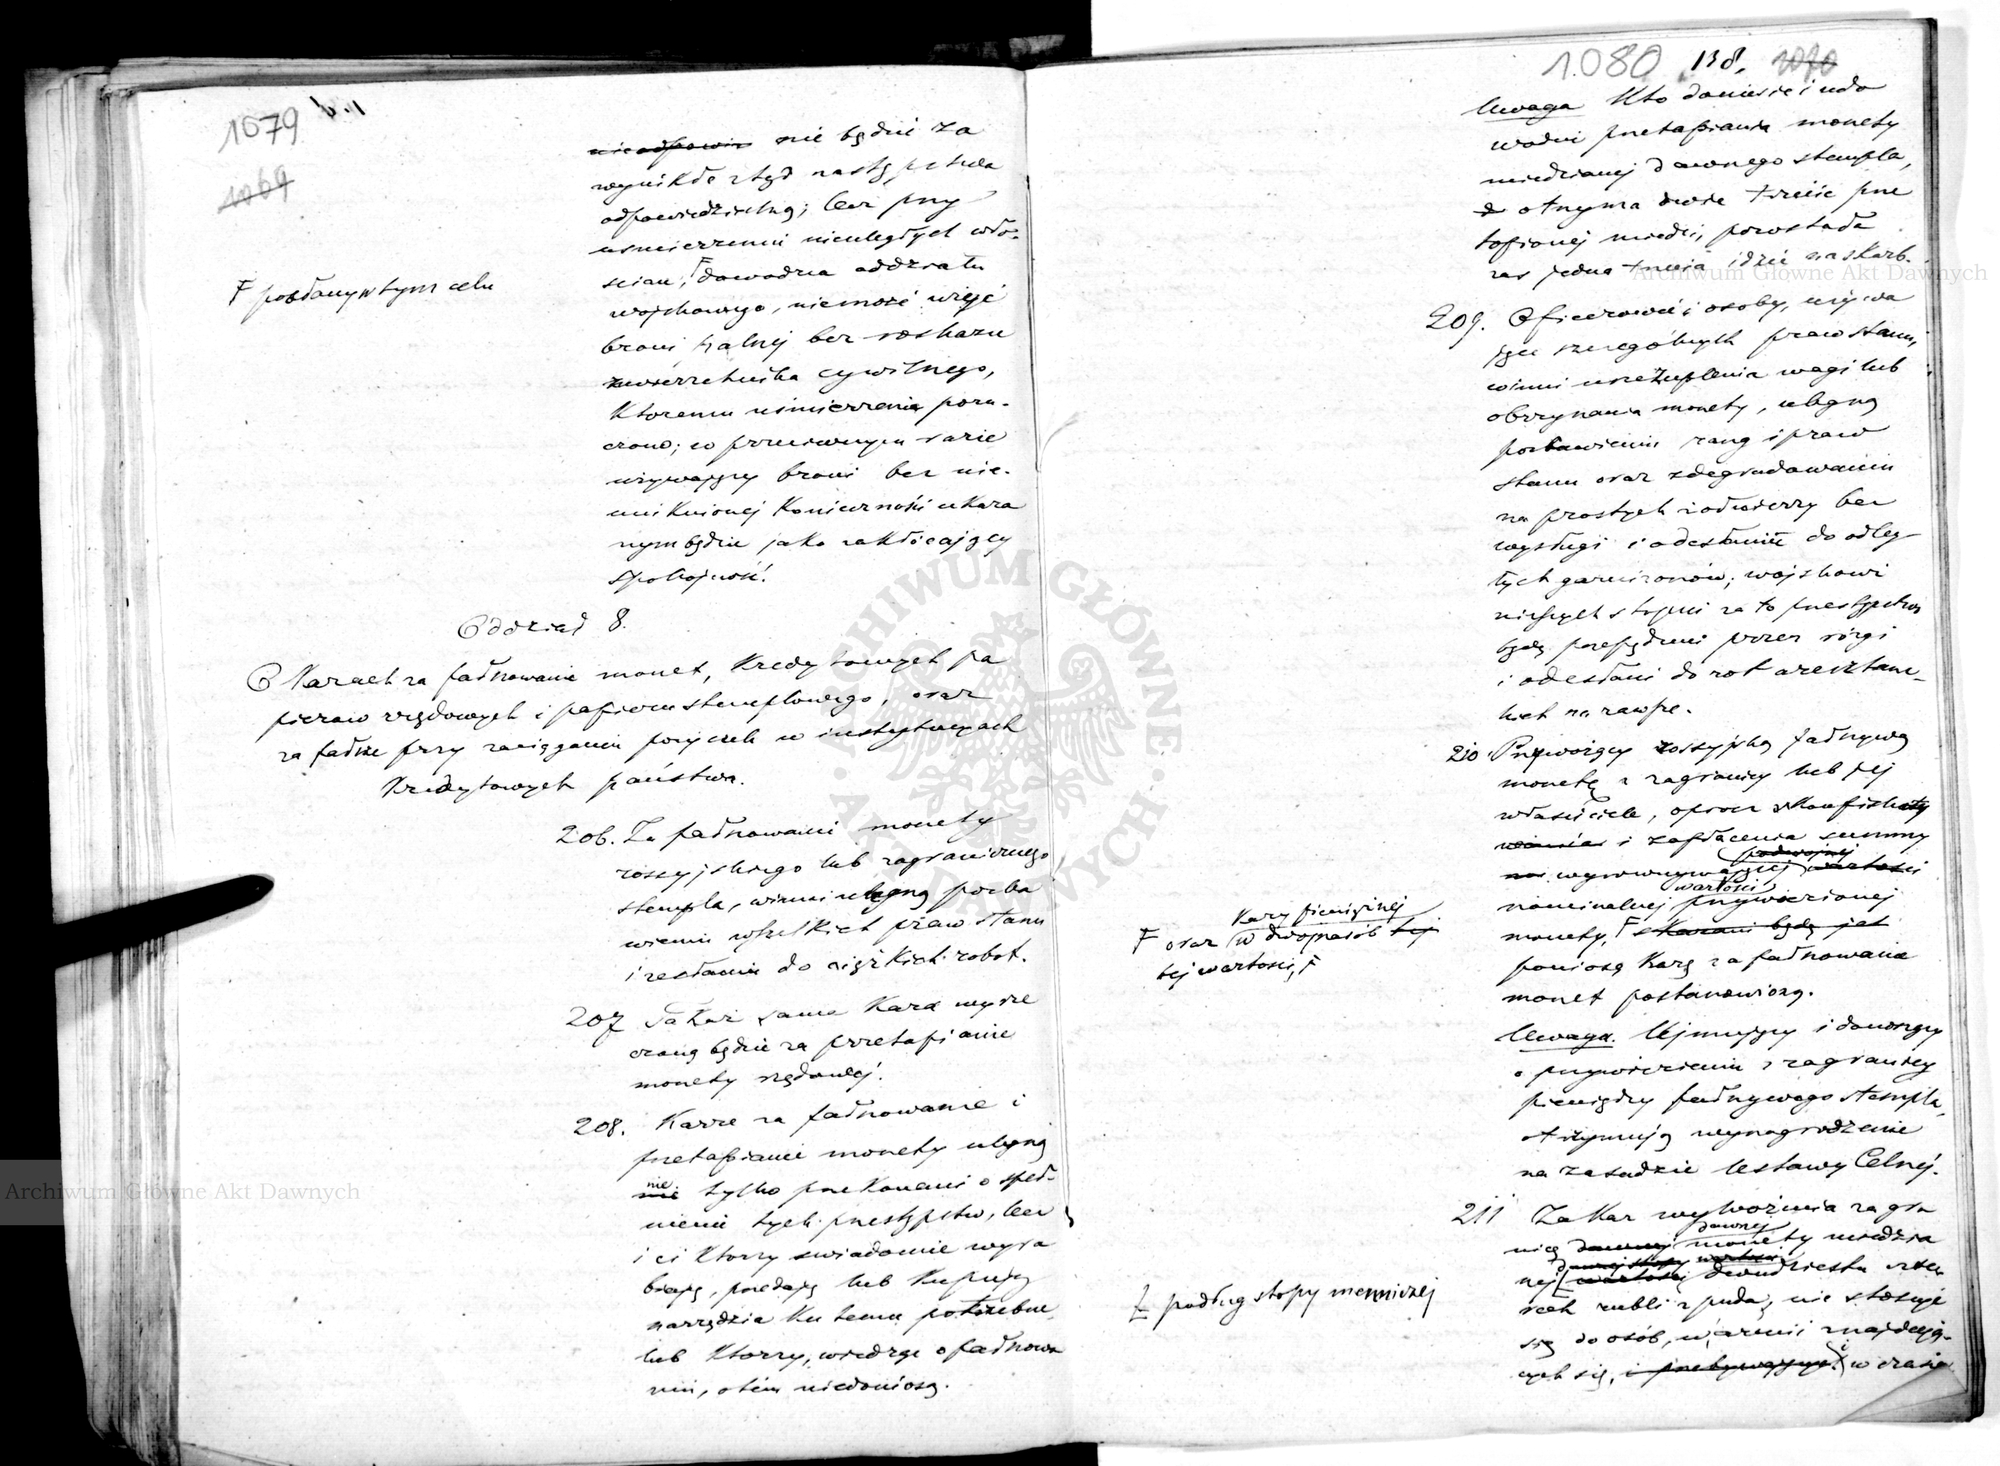 1079
1069
nieodpowie nie będzie za
wynikłe ztąd następstwa
odpowiedzialną; lecz przy
uśmierzeniu nieuległych wło-
ścian, F dowódzca oddziału
F posłany w tym celu
wojskowego, niemoże użyć
broni palnej bez rozkazu
zwierzchnika cywilnego,
któremu uśmierzenie poru-
czono; w przeciwnym razie
używający broni bez nie-
uniknionej konieczności ukara
nym będzie jako zakłócający
spokojność.
Oddział 8.
O Karach za fałszowanie monet, Kredytowych pa
pierów rządowych i papieru stemplowego, oraz
za fałsze przy zaciąganiu pożyczek w instytucyach
Kredytowych państwa.
206. Za fałszowanie monety
rossyjskiego lub zagranicznego
stempla, winni ulegną pozba
wieniu wszelkich praw stanu
i zesłaniu do ciężkich robot.
207 Takaż sama Kara wyrze
czoną będzie za przetapianie
monety rządowej.
208. Karze za fałszowanie i
przetapianie monety ulegną
nie tylko przekonani o speł-
nienie tych przestępstw, lecz
i ci Którzy świadomie wyra
biają, przedają lub Kupują
narzędzia Ku temu potrzebne,
lub Którzy, wiedząc o fałszowa
niu, o tém niedoniosą.
1080 138. 1070
Uwaga Kto doniesie i udo
wodni przetapianie monety
miedzianej dawnego stempla,
otrzyma dwie trzecie prze
topionej miedzi, pozostała
zaś jedna trzecia idzie na skarb.
209. Oficerowie i osoby, używa
jące szczególnych praw stanu,
winni uszczuplenia wagi lub
obrzynania monety, ulegną
pozbawieniu rang i praw
stanu oraz zdegradowaniu
na prostych żołnierzy bez
wysługi i odesłaniu do odleg-
łych garnizonów; wojskowi
niższych stopni za to przestępstwo
będą przepędzeni przez rózgi
i odesłani do rot aresztanc-
kich na zawsze.
210 Przywożący rossyjską fałszywą
monetę z zagranicy lub jej
właściciele, oprócz skonfiskaty
i zapłacenia summy
podwójnej
wyrównywającej wartości
wartości
nominalnej przywiezionej
monety, F skarani będą jak
Kary pieniężnej
F oraz w dwójnasób tej
tej wartości, F
poniosą Karę za fałszowanie
monet postanowioną.
Uwaga. Ujmujący i donoszący
o przywiezieniu z zagranicy
pieniędzy fałszywego stempla,
otrzymują wynagrodzenie
na zasadzie Ustawy Celnéj.
211 Zakaz wywożenia za gra
dawnej
nicę dawnej monety miedzia
dawnej stopy wartości
nej wartości dwudziestu czte
rech rubli z puda, nie stosuje
F podług stopy menniczej
się do osób, w armii znajdują-
cych się, i przebywających i w czasie